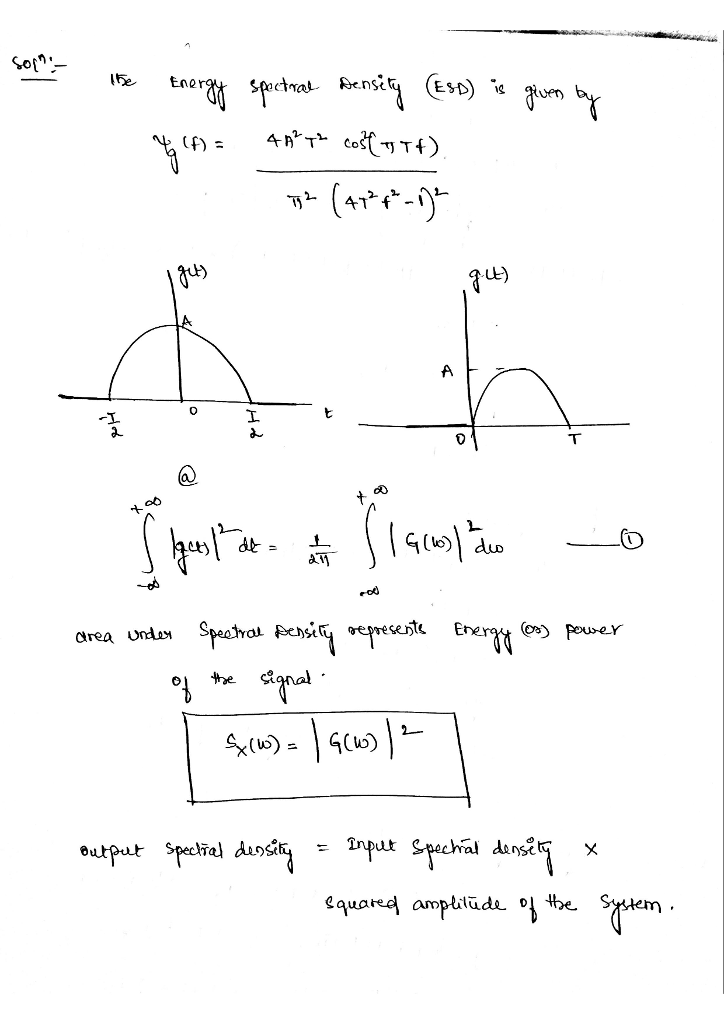 Soln:-
The Energy spectral Density (ESD) is given by
Ψg(f) = 4A²T² cos²(πTf)
π² (4T²f²-1)²
g(t) g(t)
A
A
-T/2 0 T/2 t
0 T
@
+∞ ∫ -∞ |g(t)|² dt = 1/2π +∞ ∫ -∞ |G(ω)|² dω — ①
area under Spectral Density represents Energy (or) power
of the signal.
Sx(ω) = |G(ω)|²
output spectral density = Input Spectral density ×
squared amplitude of the System.